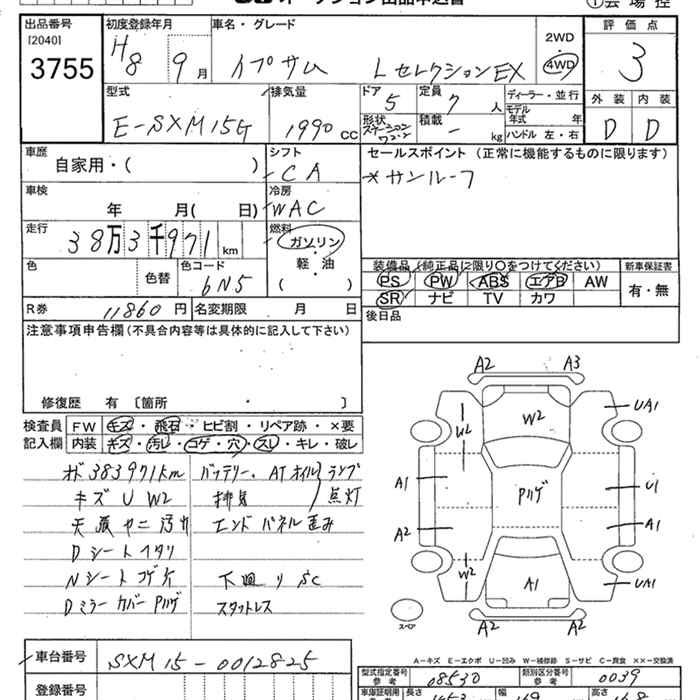 オークション出品申込書
①会場控
出品番号 初度登録年月 車名・グレード 評価点
[2040] 2WD
3755 H8 9月 イプサム LセレクションEX 4WD 3
型式 排気量 ドア 定員 ディーラー・並行 外装 内装
E-SXM15G 1990 cc 5 7人 モデル年式 年 D D
形状 ステーションワゴン 積載 - kg ハンドル 左・右
車歴 シフト セールスポイント (正常に機能するものに限ります)
自家用・( ) CA *サンルーフ
車検 冷房
年 月( 日) WAC
走行 燃料
38万3千971km ガソリン
色 色替 色コード 軽・油
6N5 ( )
装備品(純正品に限り○をつけてください) 新車保証書
PS PW ABS エアB AW 有・無
SR ナビ TV カワ
R券 11860円 名変期限 月 日 後日品
注意事項申告欄(不具合内容等は具体的に記入して下さい)
修復歴 有 〔箇所 ・ 〕
検査員 FW キズ・飛石・ヒビ割・リペア跡・×要
記入欄 内装 キズ・汚レ・コゲ・穴・スレ・キレ・破レ
オド383971km バッテリー・ATオイルランプ
キズ U W2 排気 点灯
天張ヤニ汚れ エンドパネル歪み
Dシートヘタリ
Nシートコゲ穴 下廻り SC
Dミラーカバー Pハゲ スタットレス
A2 A3
UA1
W2 W2
A1 Pハゲ U1
A2 A1
W2 A1 UA1
スペア A2 A2
A-キズ E-エクボ U-凹み W-補修跡 S-サビ C-腐食 ××-交換済
車台番号 SXM15-0012825
型式指定番号 参考 08530 類別区分番号 参考 0039
登録番号
車庫証明用 長さ 453 幅 169 高さ 168